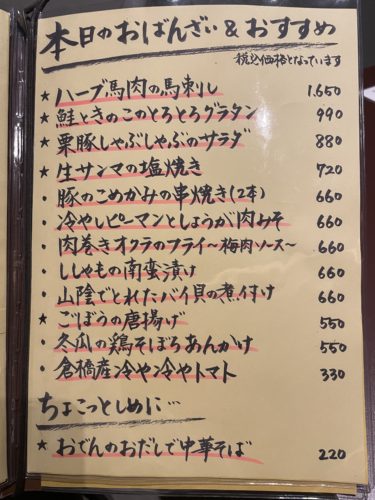 本日のおばんざい&おすすめ
税込価格となっています
★ハーブ馬肉の馬刺し 1.650
★鮭ときのこのとろとろグラタン 990
★栗豚しゃぶしゃぶのサラダ 880
★生サンマの塩焼き 720
・豚のこめかみの串焼き(2本) 660
・冷やしピーマンとしょうが肉みそ 660
・肉巻きオクラのフライ〜梅肉ソース〜 660
・ししゃもの南蛮漬け 660
・山陰でとれたバイ貝の煮付け 660
★ごぼうの唐揚げ 550
・冬瓜の鶏そぼろあんかけ 550
・倉橋産冷や冷やトマト 330
ちょこっとしめに…
★おでんのおだしで中華そば 220